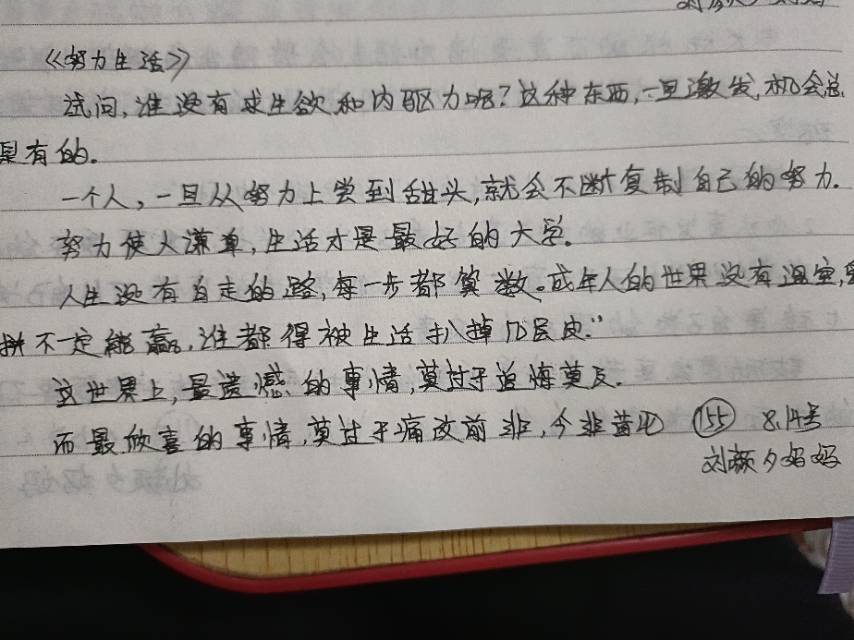 《努力生活》
试问,谁没有求生欲和内驱力呢?这种东西,一旦激发,机会总
是有的.
一个人,一旦从努力上尝到甜头,就会不断复制自己的努力.
努力使人谦卑,生活才是最好的大学.
人生没有白走的路,每一步都算数。成年人的世界没有温室,
拼不一定能赢,谁都得被生活扒掉几层皮."
这世界上,最遗憾的事情,莫过于追悔莫及.
而最欣喜的事情,莫过于痛改前非,今非昔比 (155) 8.14号
刘颜夕妈妈